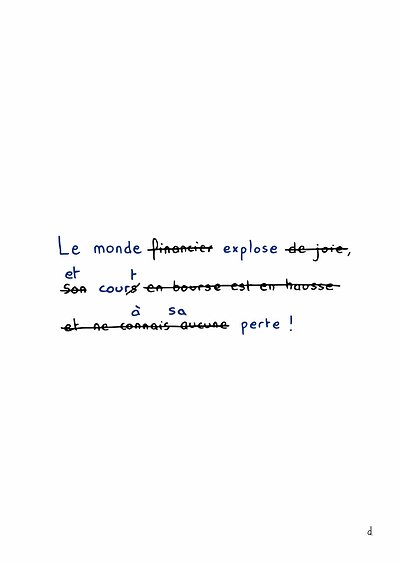 Le monde financier explose de joie,
et t
Son cours en bourse est en hausse
à sa
et ne connais aucune perte !
d